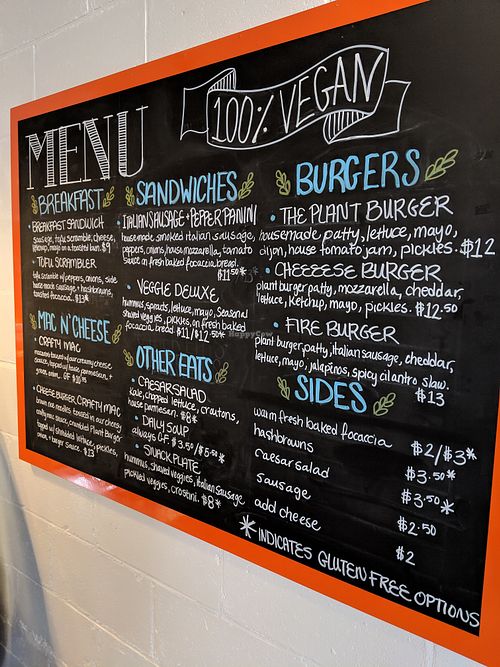 MENU
100% VEGAN
BREAKFAST
• BREAKFAST SANDWICH
sausage, tofu scrambler, cheese,
ketchup, mayo on a toasted bun. $9
• TOFU SCRAMBLER
tofu scramble w/peppers, onions, side
house-made sausage + hashbrowns,
toasted focaccia. $13*
MAC N' CHEESE
• CRAFTY MAC
sauce, topped w/house parmesan +
green onion. GF $10.75
• CHEESEBURGER CRAFTY MAC
brown rice noodles tossed in our cheesy
crafty mac sauce, crumbled Plant Burger
topped w/shredded lettuce, pickles,
onion, + burger sauce. $13
SANDWICHES
• ITALIAN SAUSAGE + PEPPER PANINI
house made smoked italian sausage,
peppers, onions, house mozzarella, tomato
sauce on fresh baked focaccia bread.
$11.50*
• VEGGIE DELUXE
hummus, sprouts, lettuce, mayo, seasonal
shaved veggies, pickles, on fresh baked
focaccia bread. $11/$12.50*
OTHER EATS
• CAESAR SALAD
kale, chopped lettuce, croutons,
house parmesan. $8*
• DAILY SOUP
always GF. $3.50/$5.50*
• SNACK PLATE
hummus, shaved veggies, italian sausage
pickled veggies, crostini. $8*
BURGERS
• THE PLANT BURGER
housemade patty, lettuce, mayo,
dijon, house tomato jam, pickles. $12
• CHEEEESE BURGER
plant burger patty, mozzarella, cheddar,
lettuce, ketchup, mayo, pickles. $12.50
• FIRE BURGER
plant burger patty, italian sausage, cheddar,
lettuce, mayo, jalapeños, spicy cilantro slaw.
$13
SIDES
warm fresh baked focaccia $2/$3*
hashbrowns $3.50*
caesar salad $3.50*
sausage $2.50
add cheese $2
* INDICATES GLUTEN FREE OPTIONS
HappyCow